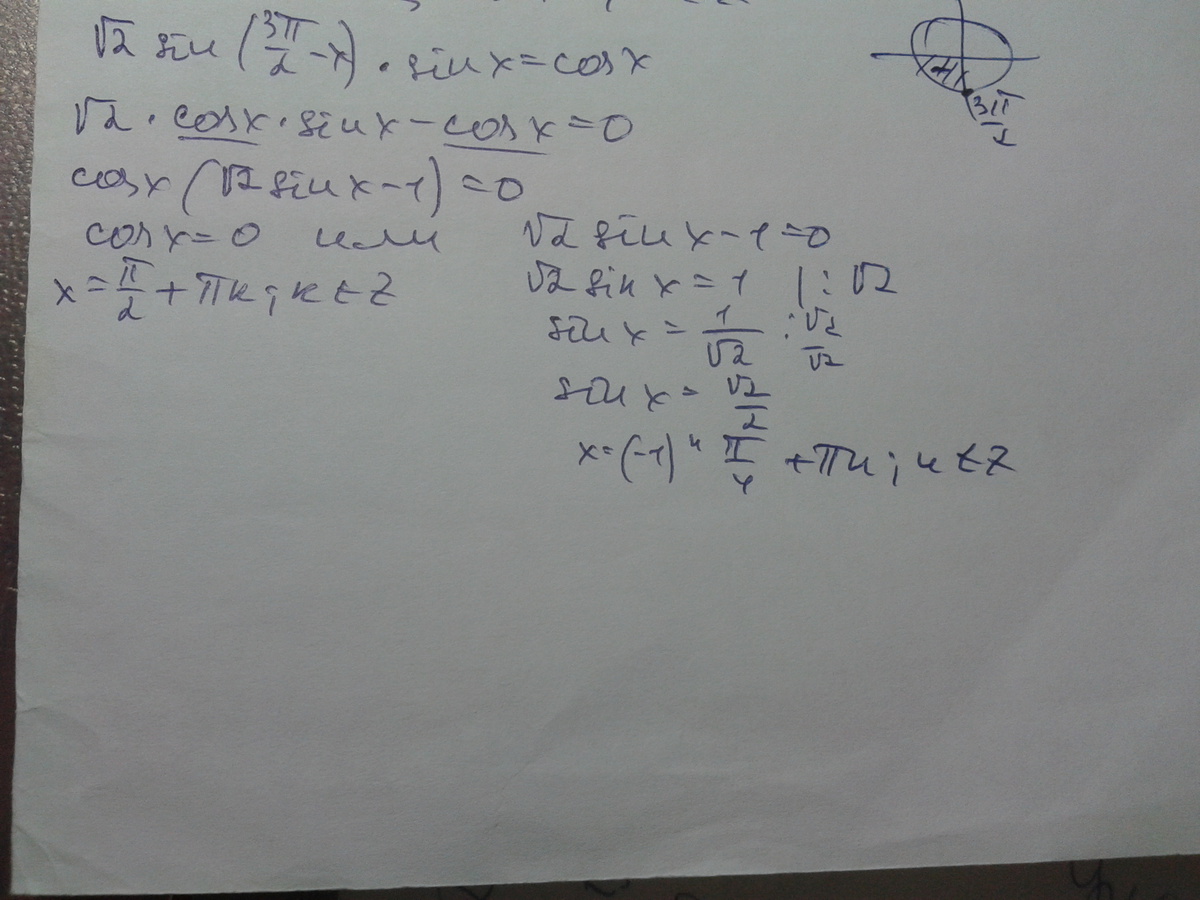 √2 sin (3π/2 - x) · sin x = cos x
3π/2
√2 · cos x · sin x - cos x = 0
cos x (√2 sin x - 1) = 0
cos x = 0 или √2 sin x - 1 = 0
x = π/2 + πк; к ∈ Z √2 sin x = 1 | : √2
sin x = 1/√2 : √2/√2
sin x = √2/2
x = (-1)ᵏ π/4 + πк; к ∈ Z